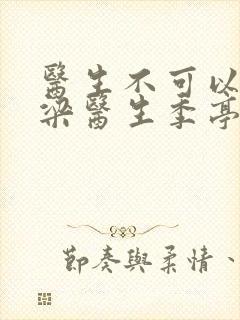 醫生不可以
梁醫生季亭
節奏與柔情、